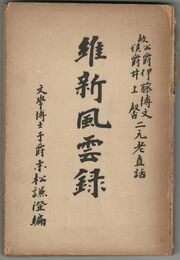 故公爵伊藤博文
故侯爵井上馨 二元老直話
維新風雲録
文學博士子爵末松謙澄編